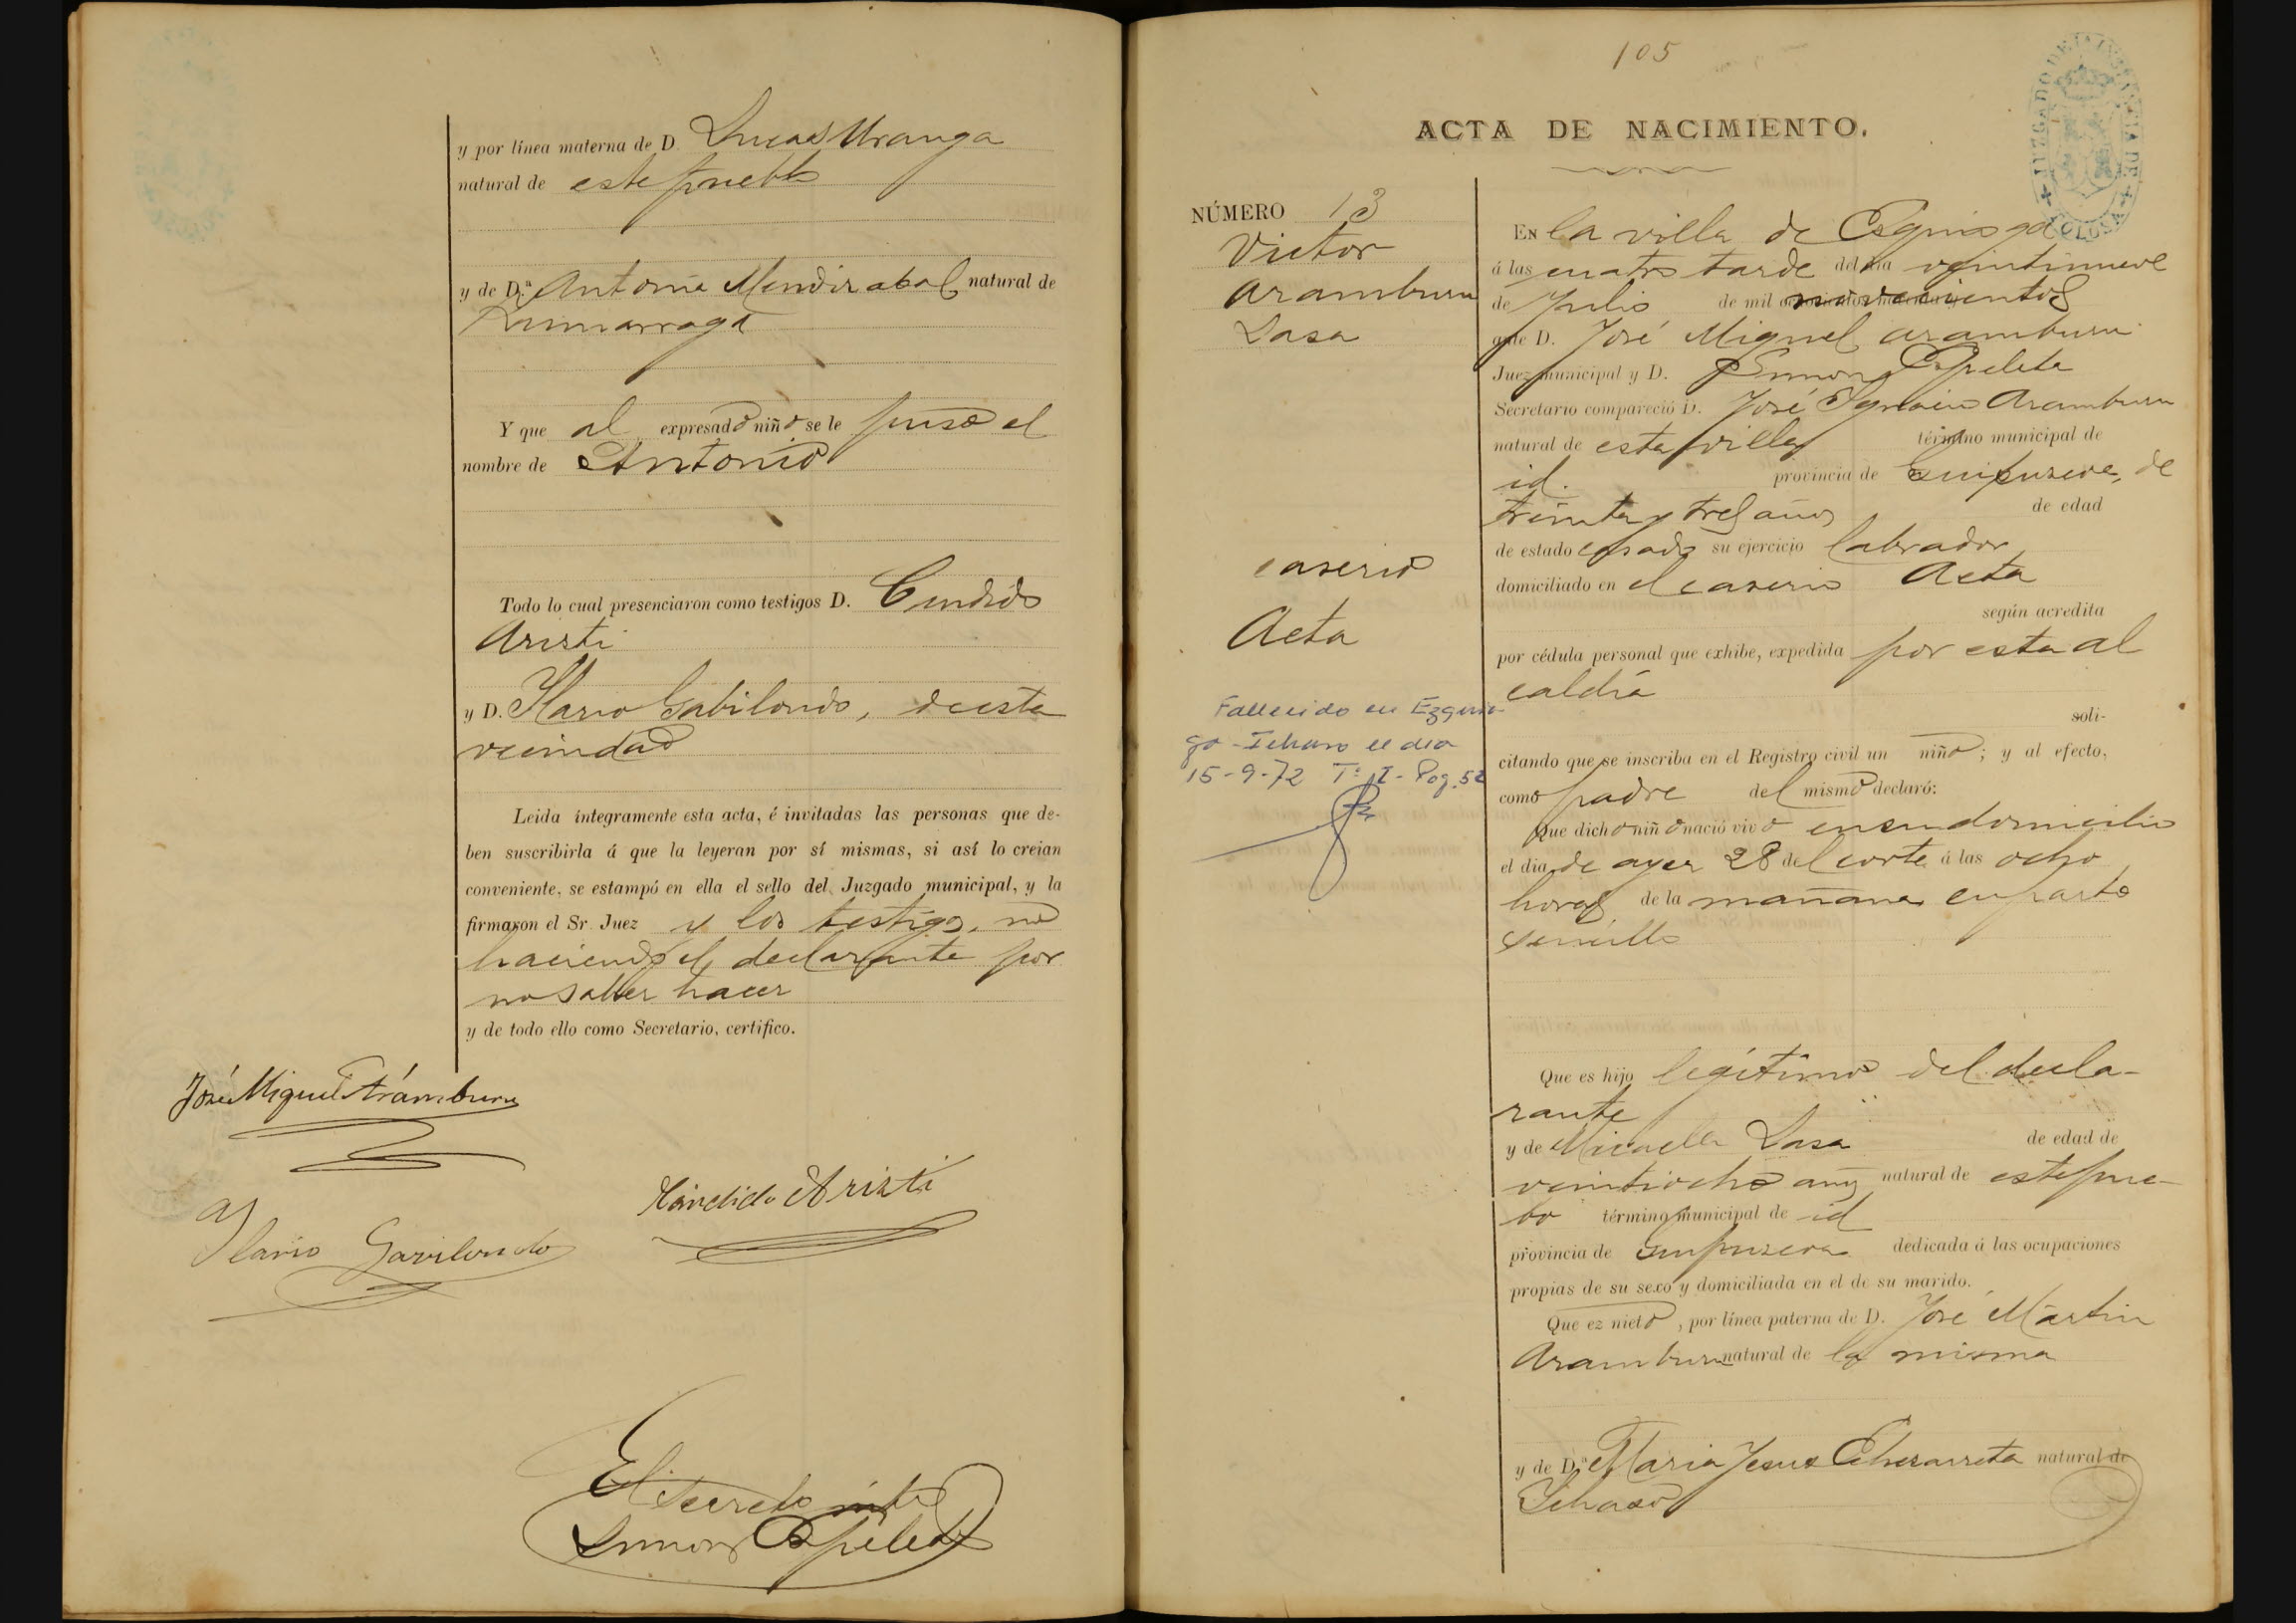 y por línea materna de D. Lucas Uranga
natural de este pueblo
y de D.ª Antonia Mendizabal natural de
Zumarraga
Y que al expresado niño se le puso el
nombre de Antonio
Todo lo cual presenciaron como testigos D. Candido
Aristi
y D. Ilario Gabilondo, de esta
vecindad
Leida íntegramente esta acta, é invitadas las personas que de-
ben suscribirla á que la leyeran por sí mismas, si así lo creian
conveniente, se estampó en ella el sello del Juzgado municipal, y la
firmaron el Sr. Juez y los testigos, no
haciendo el declarante por
no saber hacer
y de todo ello como Secretario, certifico.
José Miguel Arámburu
Cándido Aristi
Ilario Gavilondo
El Secreto
Simon Ezpeleta
105
ACTA DE NACIMIENTO.
JUZGADO DE 1.ª INSTANCIA DE TOLOSA
NÚMERO 13
Victor
Aramburu
Lasa
caserio
Acta
Fallecido en Ezquio-
ga-Ichaso el dia
15-9-72 Tº I-Pag. 52
En la villa de Ezquioga
á las cuatro tarde del dia veintinueve
de Julio de mil novecientos
ante D. José Miguel Aramburu
Juez municipal y D. Simon Ezpeleta
Secretario compareció D. José Ignacio Aramburu
natural de esta villa término municipal de
id. provincia de Guipuzcoa, de
treinta y tres años de edad
de estado casado su ejercicio labrador
domiciliado en el caserio Acta
según acredita
por cédula personal que exhibe, expedida por esta al
caldía
soli-
citando que se inscriba en el Registro civil un niño; y al efecto,
como padre del mismo declaró:
Que dicho niño nació vivo en su domicilio
el dia de ayer 28 del corte á las ocho
horas de la mañana en parto
sencillo
Que es hijo legítimo del decla-
rante
y de Micaella Lasa de edad de
veintiocho años natural de este pue-
bo término municipal de id
provincia de Guipuzcoa dedicada á las ocupaciones
propias de su sexo y domiciliada en el de su marido.
Que ez nieto, por línea paterna de D. José Martin
Aramburu natural de la misma
y de D.ª Maria Jesus Echezarreta natural de
Ichaso